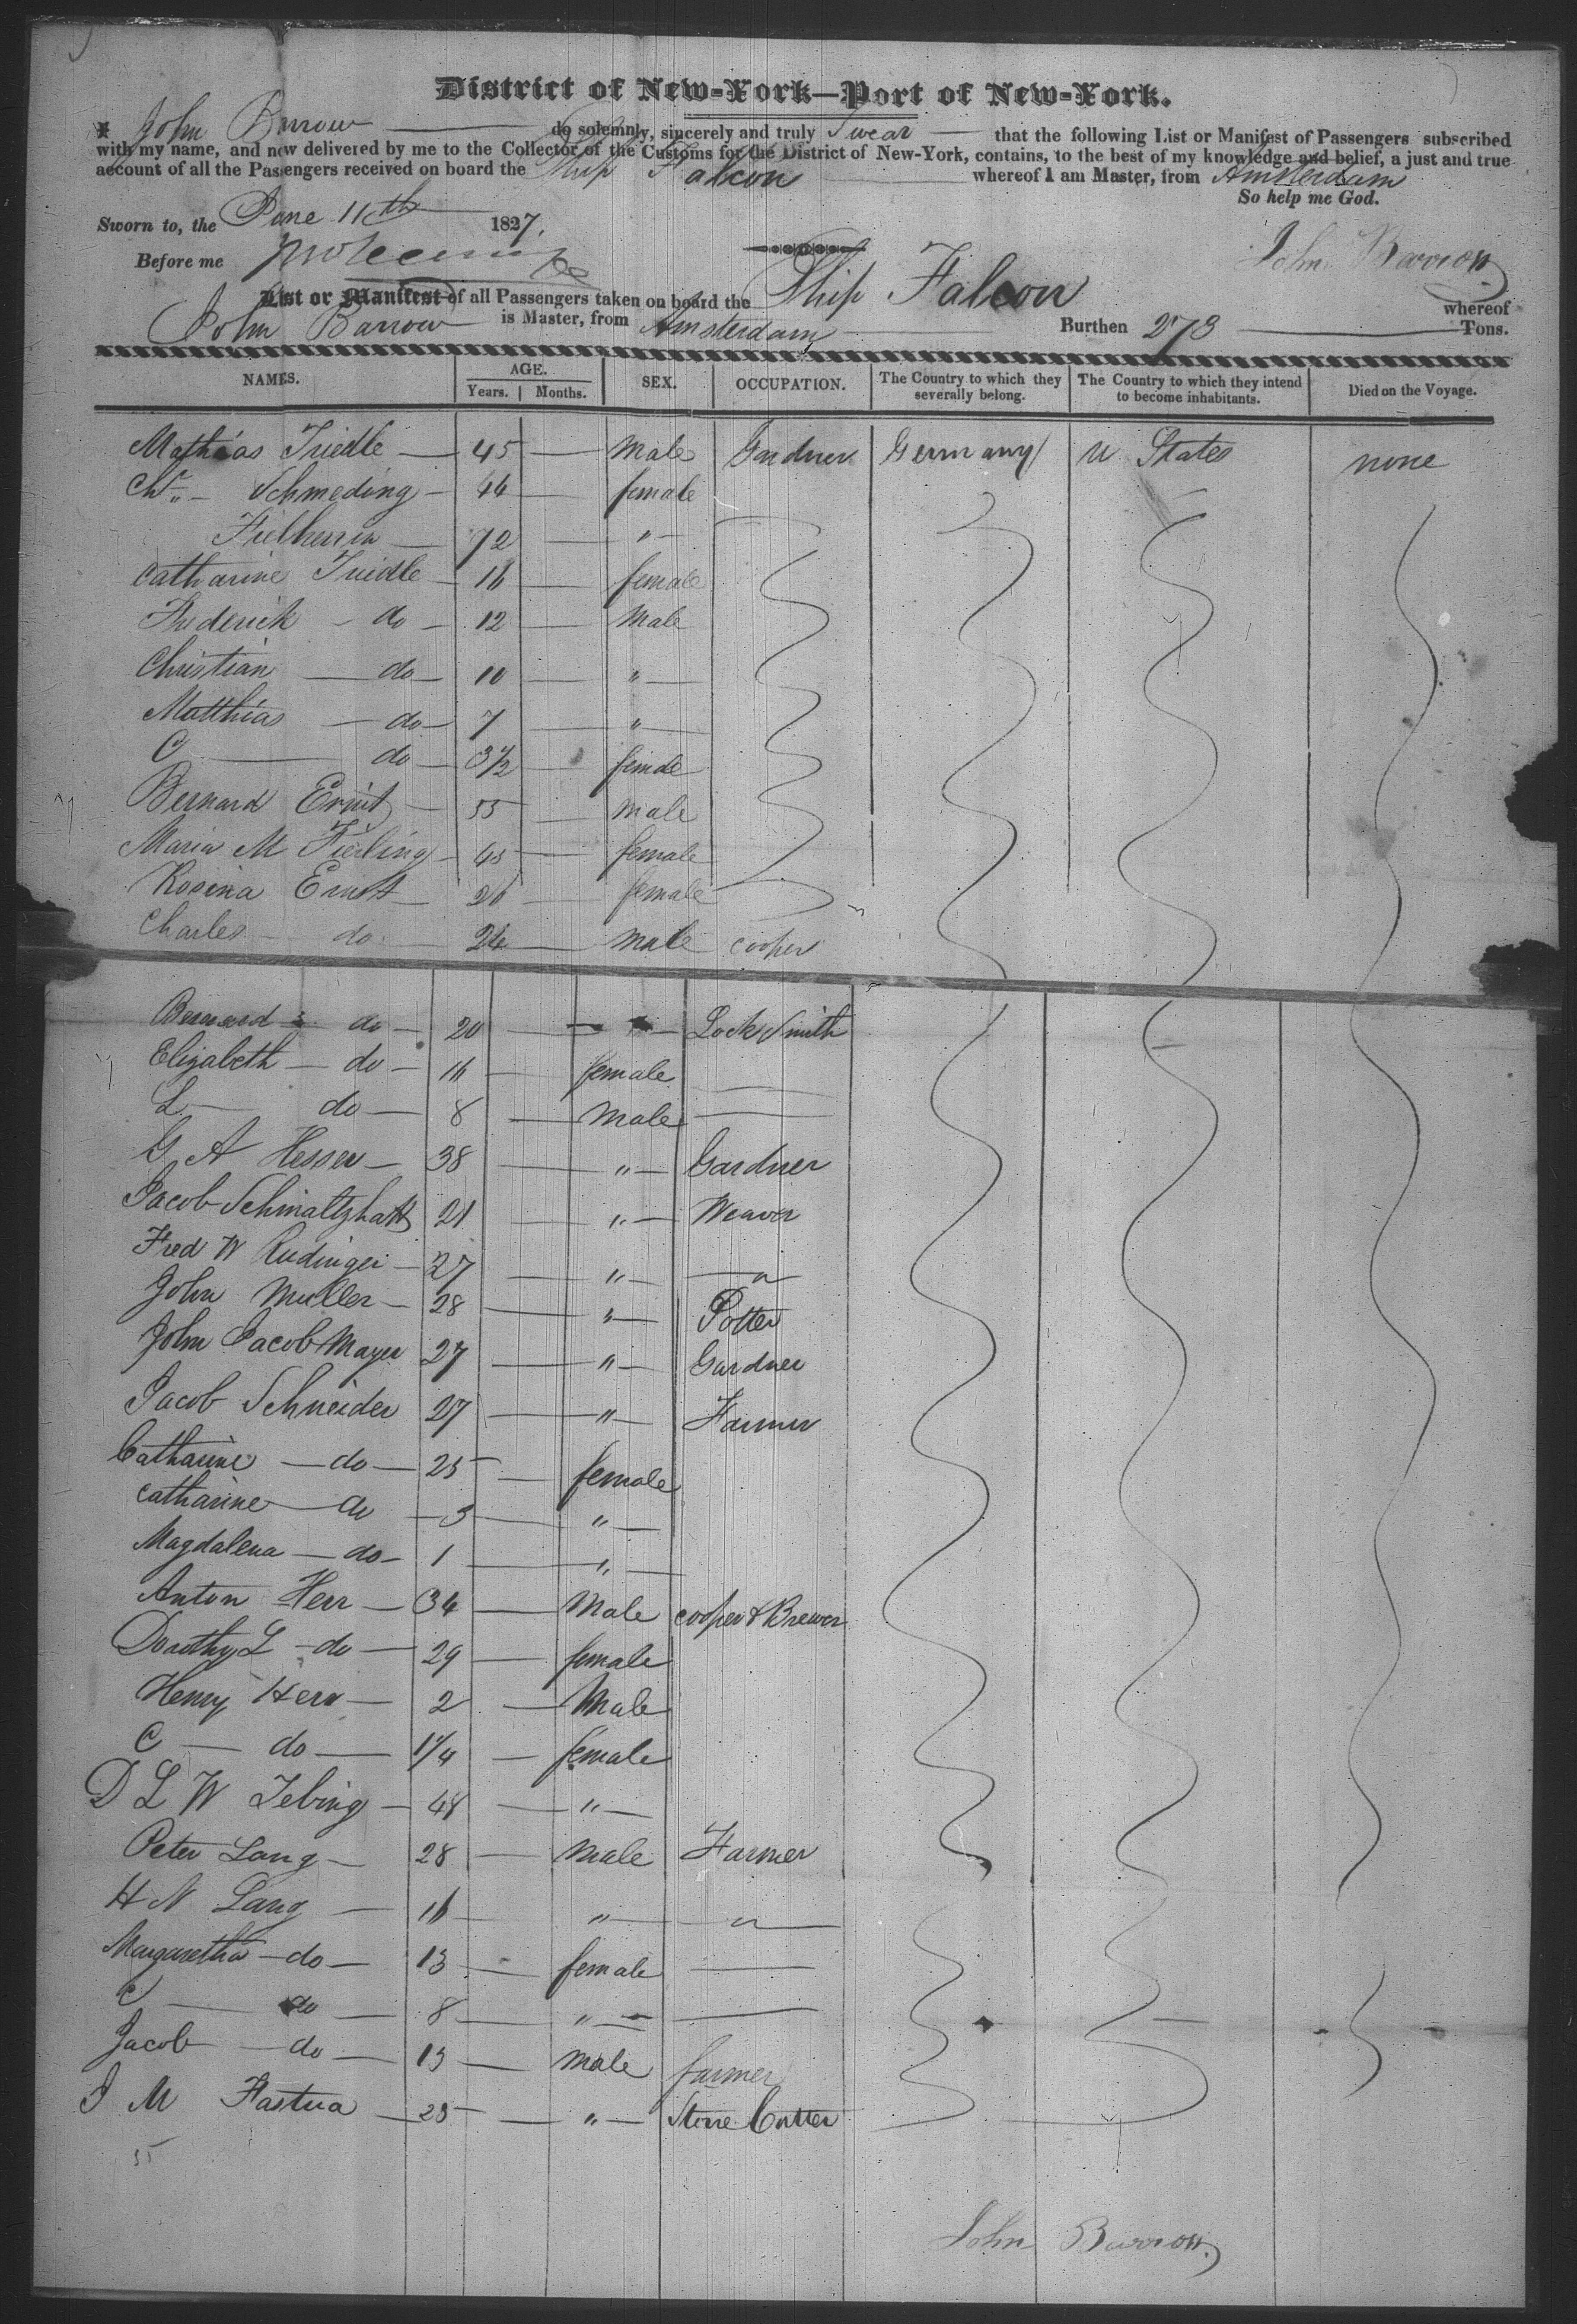 District of New-York—Port of New-York.
I John Barrow do solemnly, sincerely and truly Swear that the following List or Manifest of Passengers subscribed
with my name, and now delivered by me to the Collector of the Customs for the District of New-York, contains, to the best of my knowledge and belief, a just and true
account of all the Passengers received on board the Ship Falcon whereof I am Master, from Amsterdam
So help me God.
Sworn to, the June 11th 1827.
John Barrow
Before me
List or Manifest of all Passengers taken on board the Ship Falcon whereof
John Barrow is Master, from Amsterdam Burthen 273 Tons.
NAMES. AGE. Years. Months. SEX. OCCUPATION. The Country to which they severally belong. The Country to which they intend to become inhabitants. Died on the Voyage.
Mathias Friedle 45 Male Gardner Germany U States none
Schmeding 44 female
72 "
Catharine Friedle 16 female
Frederick do 12 Male
Christian do 10 "
Matthias do 7 "
C do 3½ female
Bernard Ernst 55 male
Maria M 45 female
Rosina Ernst 26 female
Charles do 24 Male cooper
Bernard do 20 " Lock Smith
Elizabeth do 16 female
L do 8 Male
G A Hesser 38 " Gardner
Jacob Schmaltzhaft 21 " Weaver
Fred W Rudinger 27 " "
John Muller 28 " Potter
John Jacob Mayer 27 " Gardner
Jacob Schneider 27 " Farmer
Catharine do 25 female
Catharine do 3 "
Magdalena do 1 "
Anton Herr 34 Male cooper & Brewer
Dorothy L do 29 female
Henry Herr 2 Male
C do 1/4 female
D L W 48 "
Peter Lang 28 male Farmer
H N Lang 16 " "
Margaretha do 13 female
C do 8 "
Jacob do 13 male farmer
J M 25 " Stone Cutter
35
John Barrow